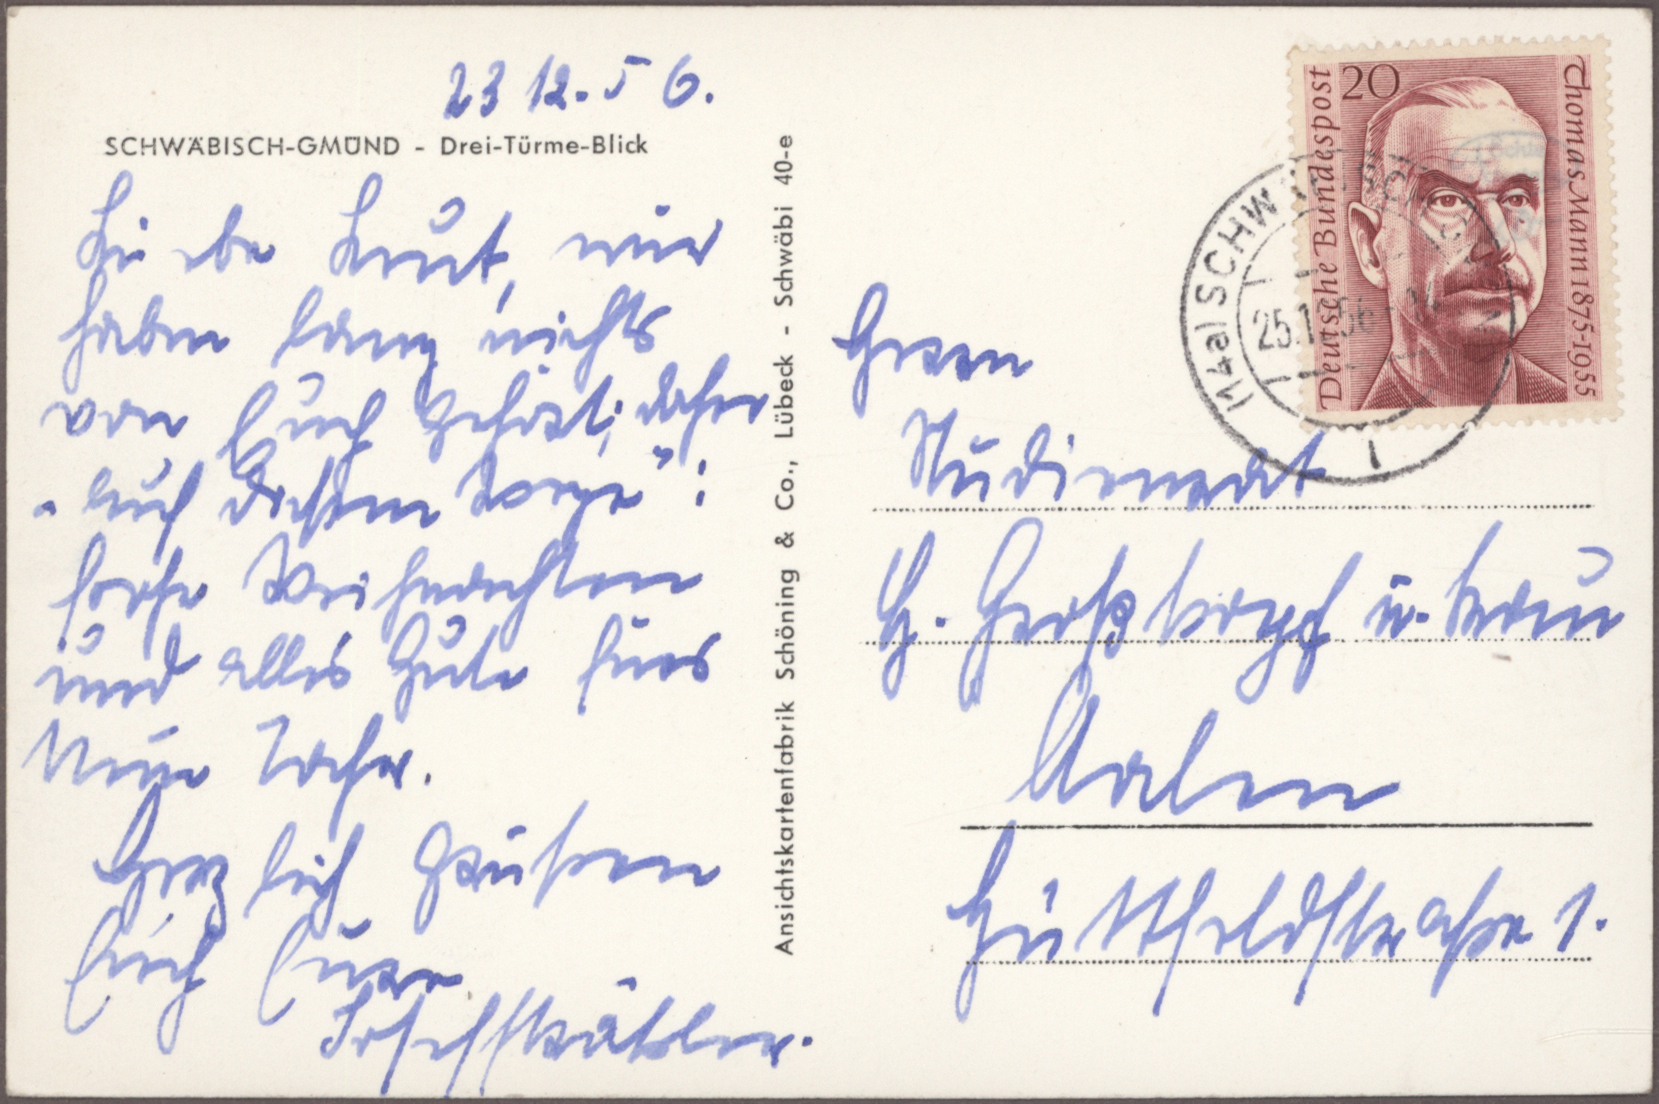 23 12. 56.
SCHWÄBISCH-GMÜND - Drei-Türme-Blick
Liebe Leut, wir
haben lang nichts
von Euch gehört; daher
"auch diesem Wege":
frohe Weihnachten
und alles Gute fürs
Neue Jahr.
Herzlich grüßen
Euch Eure
Ansichtskartenfabrik Schöning & Co., Lübeck - Schwäbi 40-e
20
Deutsche Bundespost
Thomas Mann 1875-1955
(14a) SCHWÄBISCH GMÜND
25.12.56
1
Herrn
Studienrat
H. Großkopf u. Frau
Aalen
Hüttfeldstraße 1.